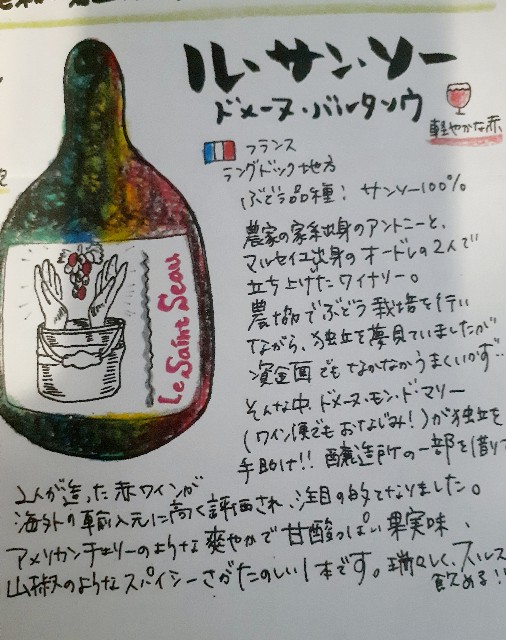 ル・サン・ソー
ドメーヌ・バルタソウ
軽やかな赤
フランス
ラングドック地方
ぶどう品種：サンソー100%
農家の家系出身のアントニーと、
マルセイユ出身のオードレの2人で
立ち上げたワイナリー。
農協でぶどう栽培を行い
ながら、独立を夢見ていましたが
資金面でもなかなかうまくいかず…
そんな中、ドメーヌ・モン・ド・マリー
(ワイン便でもおなじみ！)が独立を
手助け!! 醸造所の一部を借り
Le Saint Seau
2人が造った赤ワインが
海外の輸入元に高く評価され、注目の的となりました。
アメリカンチェリーのような爽やかで甘酸っぱい果実味、
山椒のようなスパイシーさがたのしい1本です。瑞々しく、スルスル
飲める!!